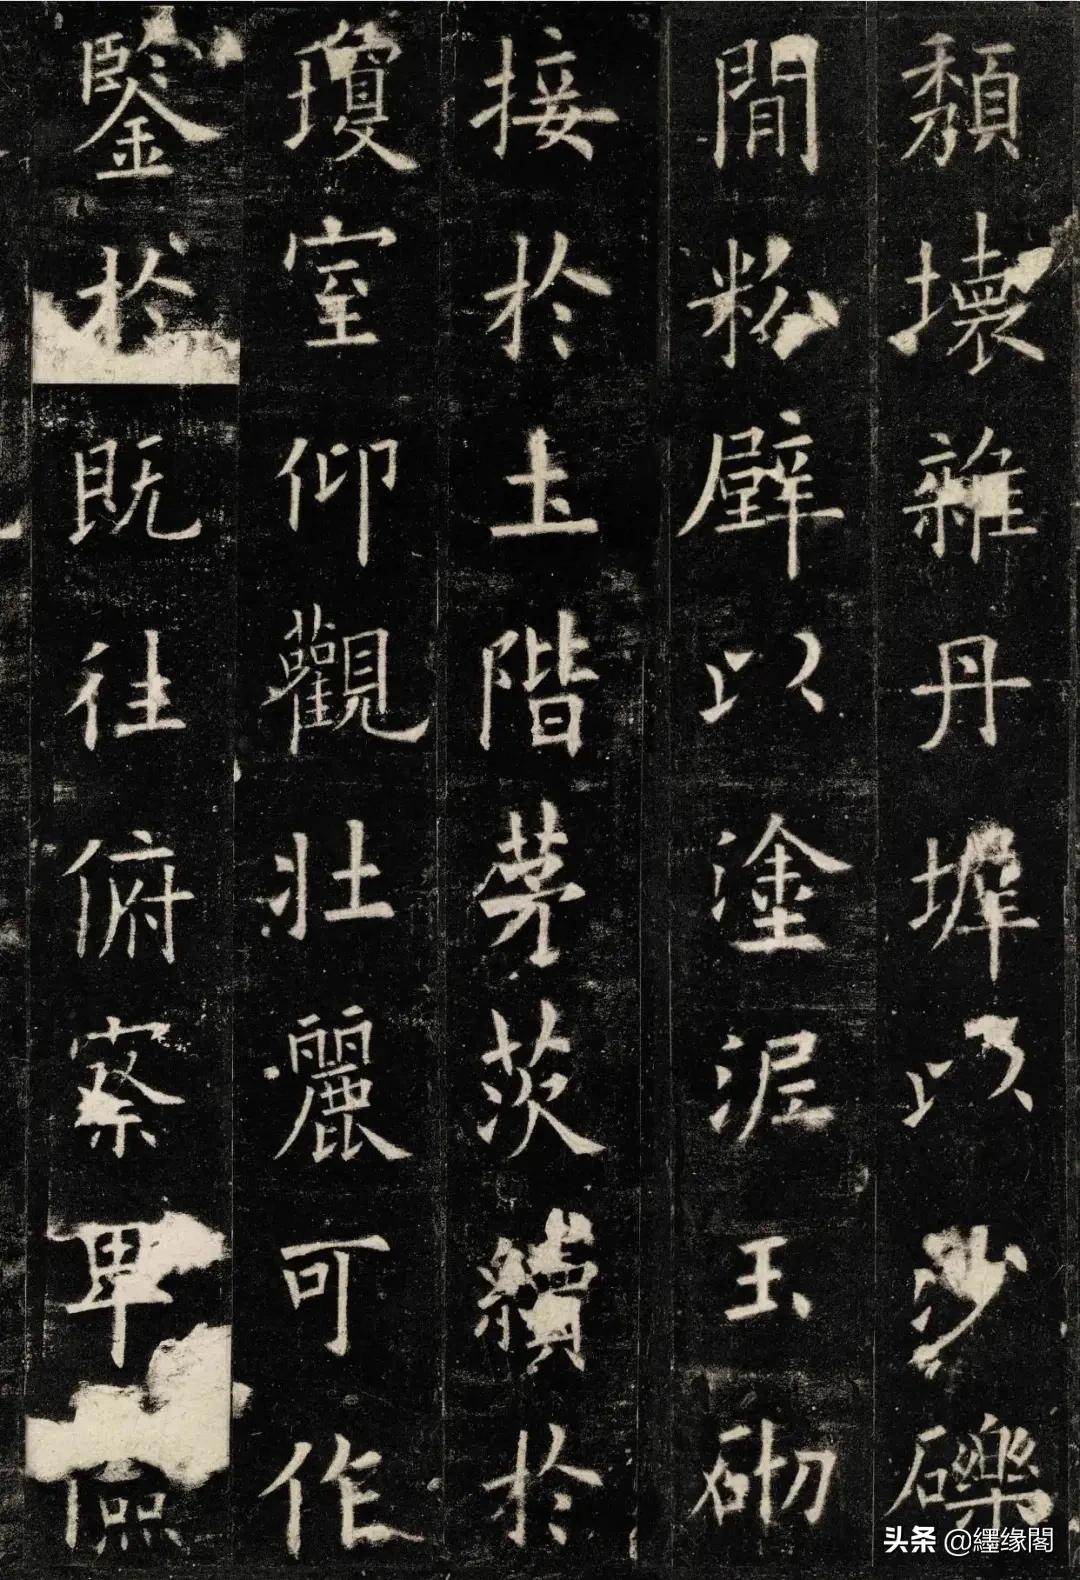 頽壞雜丹墀以沙礫
間粉壁以塗泥玉砌
接於土階茅茨續於
瓊室仰觀壯麗可作
鑒於既往俯察卑儉
头条 @纆缘閣